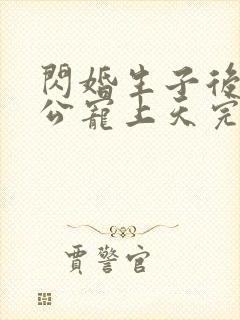 閃婚生子後
公寵上天完
賈警官